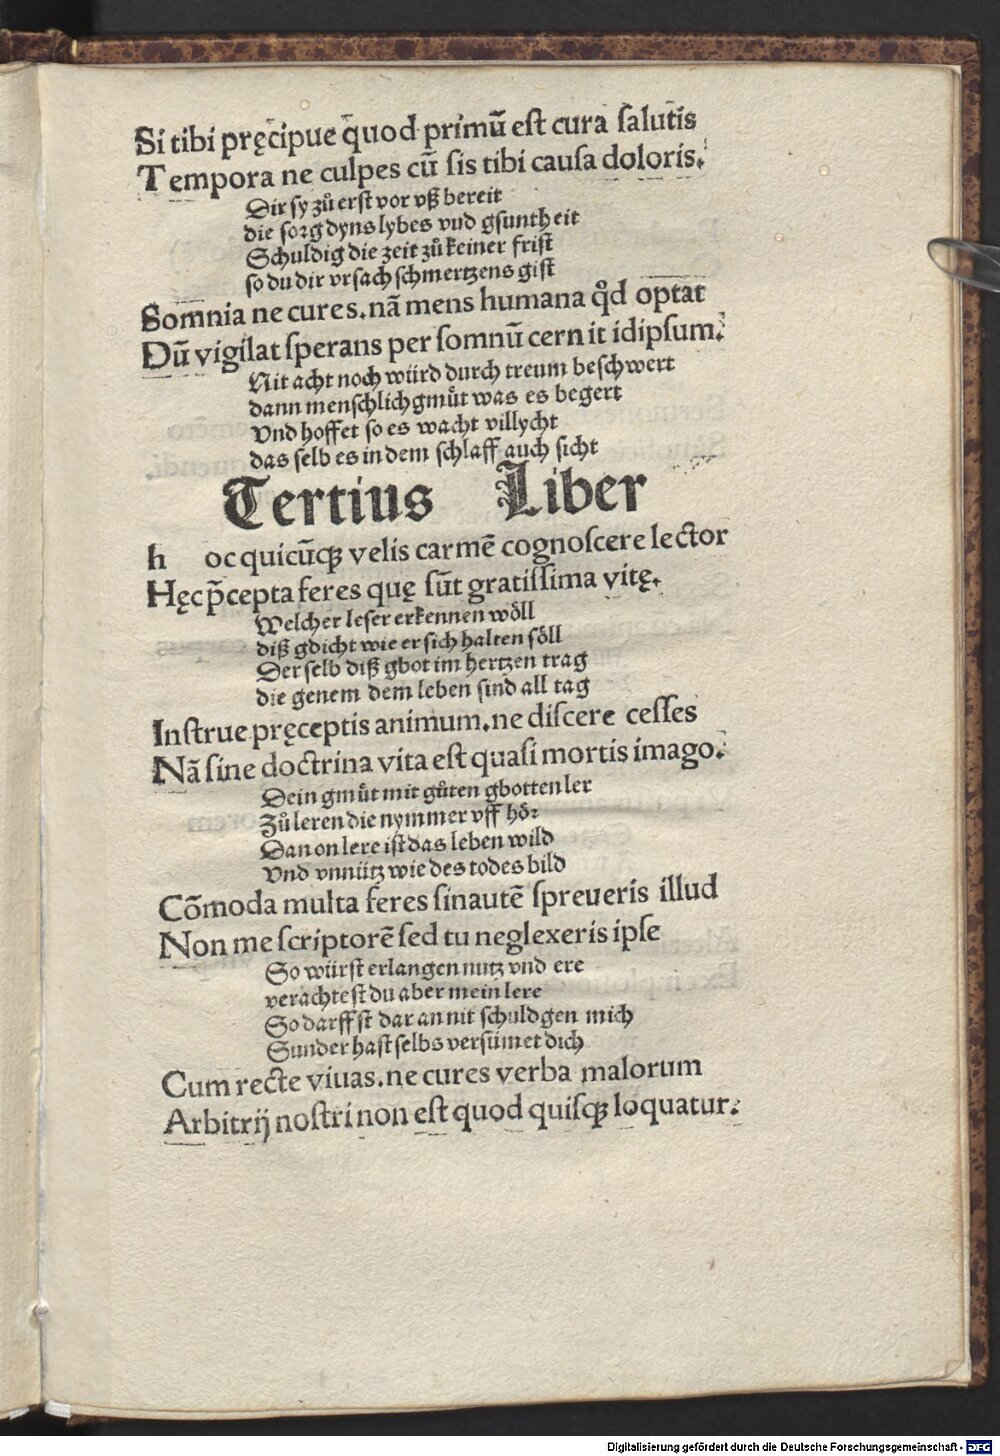 Si tibi pręcipue quod primū est cura ſalutis
Tempora ne culpes cū ſis tibi cauſa doloris.
Dir sy zů erst vor vß bereit
die sorg dyns lybes vnd gsuntheit
Schuldig die zeit zů keiner frist
so du dir vrsach schmertzens gist
Somnia ne cures. nā mens humana qd optat
Dū vigilat ſperans per ſomnū cernit idipſum.
Nit acht noch würd durch treum beschwert
dann menschlich gmůt was es begert
Vnd hoffet so es wacht villycht
das selb es in dem schlaff auch sicht
Tertius Liber
h oc quicūqꝫ velis carmē cognoſcere lector
Hęc p̄cepta feres quę sūt gratiſſima vitę.
Welcher leser erkennen wöll
diß gdicht wie er sich halten söll
Der selb diß gbot im hertzen trag
die genem dem leben sind all tag
Inſtrue pręceptis animum. ne diſcere ceſſes
Nā ſine doctrina vita eſt quaſi mortis imago.
Dein gmůt mit gůten gbotten ler
Zů leren die nymmer vff hör
Dan on lere ist das leben wild
Vnd vnnütz wie des todes bild
Cōmoda multa feres ſinautē ſpreueris illud
Non me ſcriptorē ſed tu neglexeris ipſe
So würst erlangen nutz vnd ere
verachtest du aber mein lere
So darffst dar an nit schuldgen mich
Sunder hast selbs versümet dich
Cum recte viuas. ne cures verba malorum
Arbitrij noſtri non eſt quod quiſqꝫ loquatur.
Digitalisierung gefördert durch die Deutsche Forschungsgemeinschaft - DFG